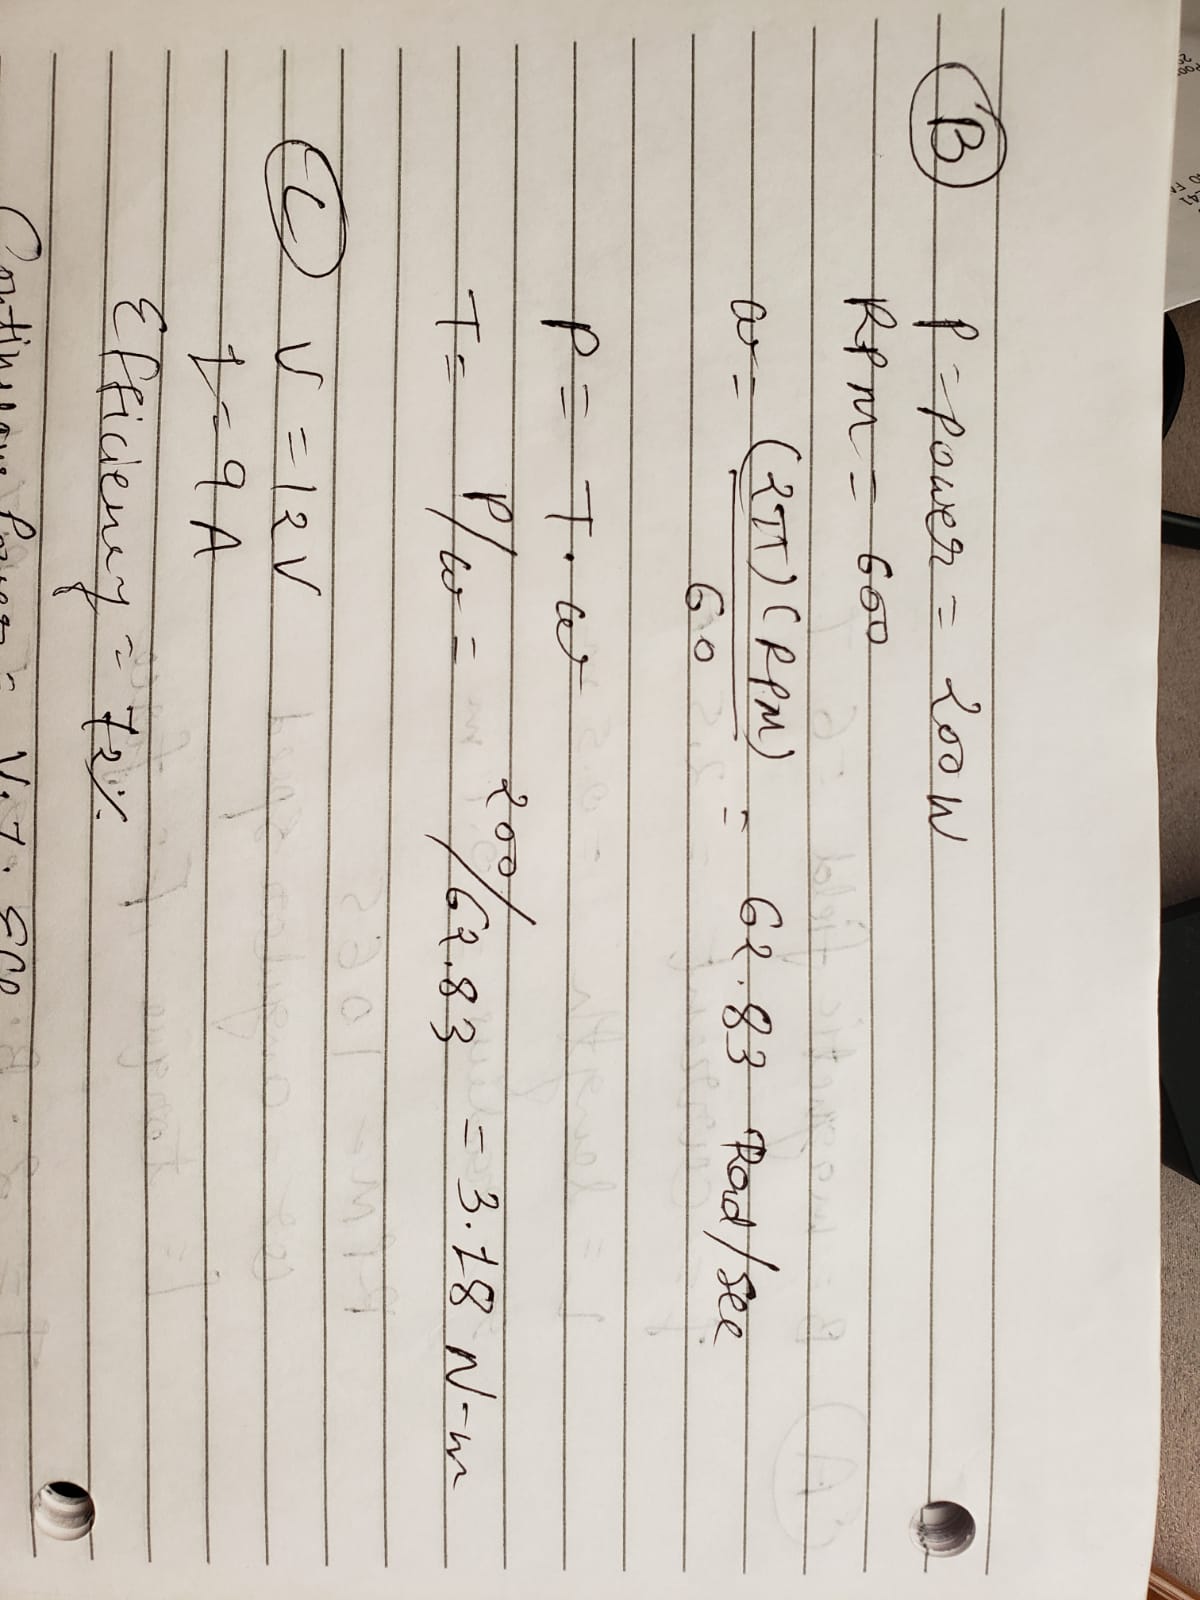 B P = Power = 200W
RPM = 600
ω = (2π)(RPM) / 60 = 62.83 Rad/sec
P = T · ω
T = P/ω = 200/62.83 = 3.18 N-m
C V = 12V
I = 9 A
Efficiency = 72%
Continuous Power = V·I·